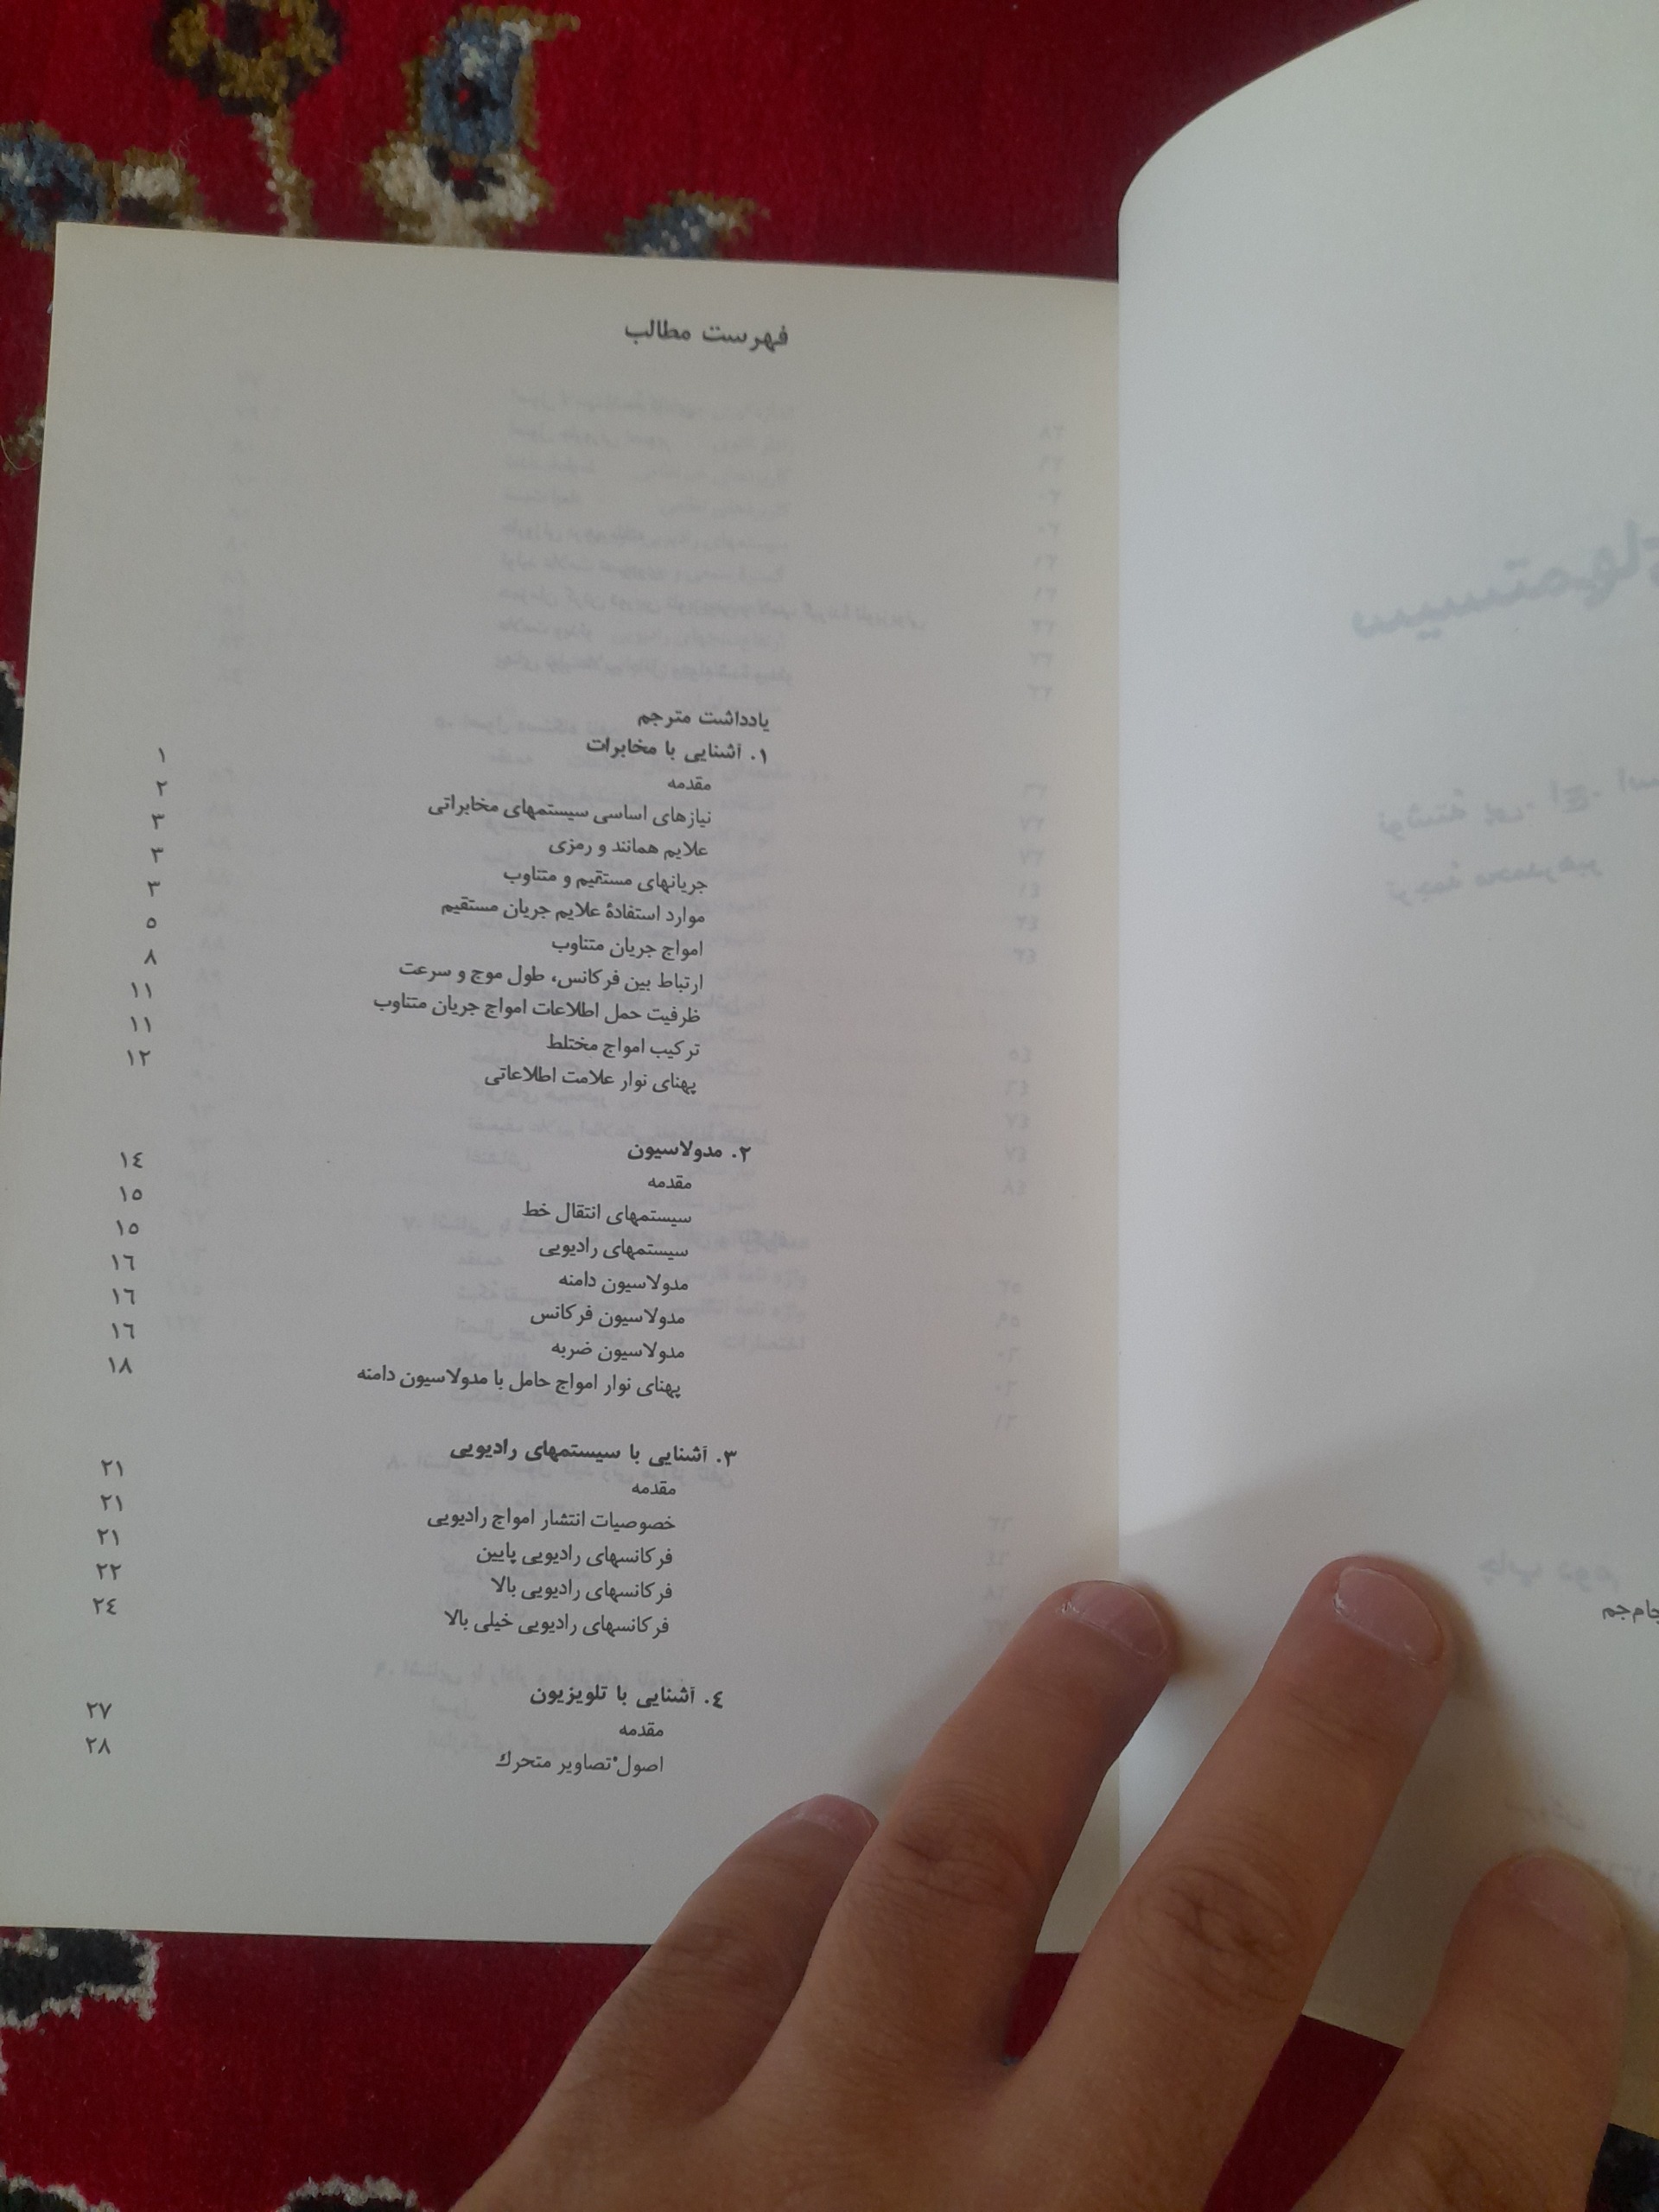 فهرست مطالب
یادداشت مترجم
۱. آشنایی با مخابرات
مقدمه ۱
نیازهای اساسی سیستمهای مخابراتی ۲
علایم همانند و رمزی ۳
جریانهای مستقیم و متناوب ۳
موارد استفادهٔ علایم جریان مستقیم ۳
امواج جریان متناوب ٥
ارتباط بین فرکانس، طول موج و سرعت ۸
ظرفیت حمل اطلاعات امواج جریان متناوب ۱۱
ترکیب امواج مختلط ۱۱
پهنای نوار علامت اطلاعاتی ۱۲
۲. مدولاسیون
مقدمه ۱٤
سیستمهای انتقال خط ۱٥
سیستمهای رادیویی ۱٥
مدولاسیون دامنه ۱٦
مدولاسیون فرکانس ۱٦
مدولاسیون ضربه ۱٦
پهنای نوار امواج حامل با مدولاسیون دامنه ۱۸
۳. آشنایی با سیستمهای رادیویی
مقدمه ۲۱
خصوصیات انتشار امواج رادیویی ۲۱
فرکانسهای رادیویی پایین ۲۱
فرکانسهای رادیویی بالا ۲۲
فرکانسهای رادیویی خیلی بالا ۲٤
٤. آشنایی با تلویزیون
مقدمه ۲۷
اصول تصاویر متحرك ۲۸
جام‌جم